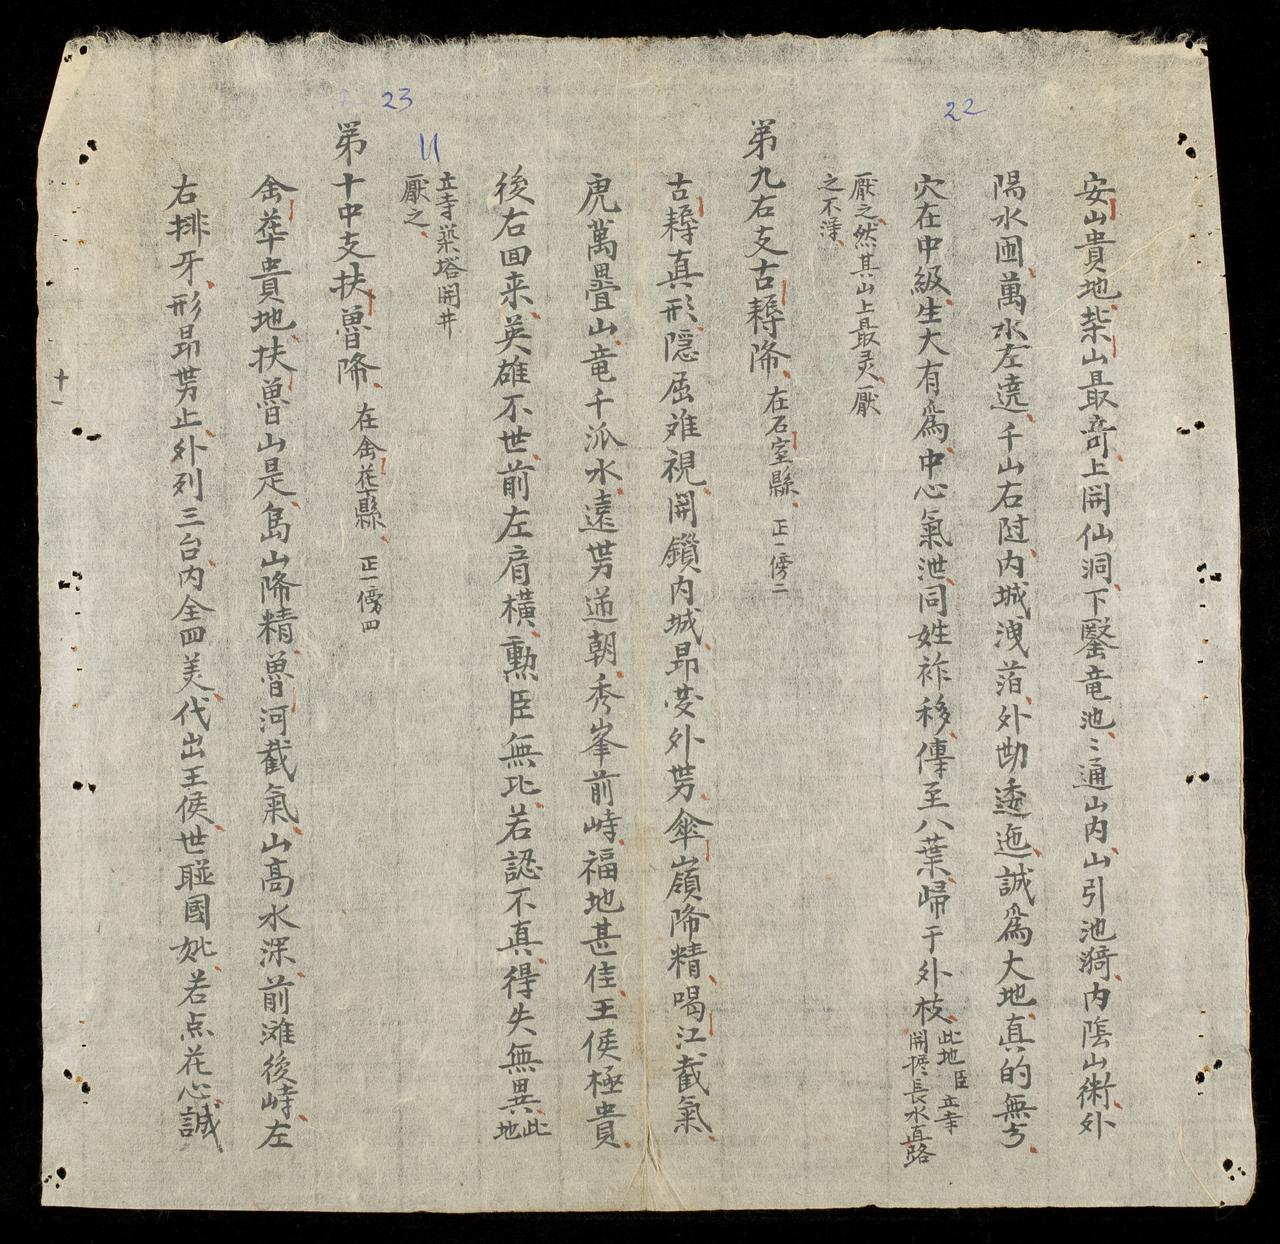 22
安山貴地柴山最竒上開仙洞下鑿竜池〻通山内山引池漪内蔭山衛外
陽水囬萬水左遶千山右附内城洩箔外坳逶迤誠為大地真的無亐
穴在中級生大有為中心氣泄同姓祚移傳至八葉歸于外枝
此地臣立寺
開撈長水直路
厭之然其山上最灵厭
之不淂
第九右支古耨降 在石室縣 正一傍二
古耨真形隱屈难視開鎖内城昂芠外势傘嶺降精喝江截氣
虎萬疊山竜千派水遠势遞朝秀峯前峙福地甚佳王侯極貴
後右回来英雄不世前左肩橫勲臣無比若認不真得失無異
此
地
立寺築塔開井
厭之
23
11
第十中支扶魯降 在金花縣 正一傍四
金華貴地扶魯山是島山降精魯河截氣山髙水深前滩後峙左
右排牙形昂势止外列三台内全四美代出王侯世聯國妣若点花心誠
十一